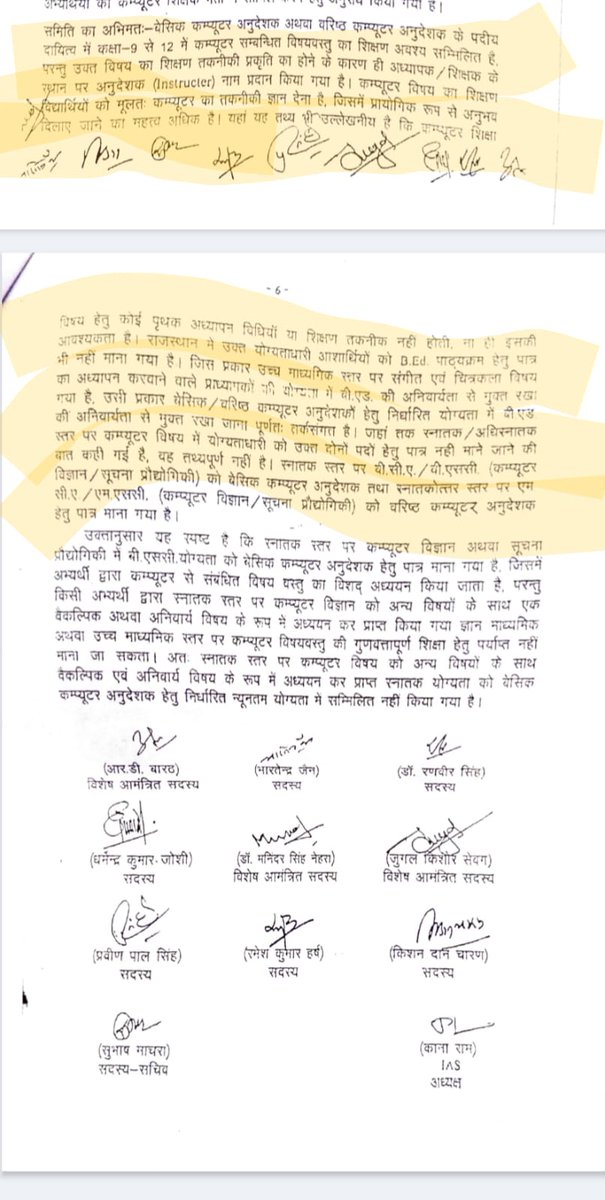 अभ्यर्थियों को कम्प्यूटर शिक्षक किया गया है।
समिति का अभिमतः-बेसिक कम्प्यूटर अनुदेशक अथवा वरिष्ठ कम्प्यूटर अनुदेशक के पदीय
दायित्व में कक्षा-9 से 12 में कम्प्यूटर सम्बन्धित विषयवस्तु का शिक्षण अवश्य सम्मिलित है,
परन्तु उक्त विषय का शिक्षण तकनीकी प्रकृति का होने के कारण ही अध्यापक/शिक्षक के
स्थान पर अनुदेशक (Instructer) नाम प्रदान किया गया है। कम्प्यूटर विषय का शिक्षण
विद्यार्थियों को मूलतः कम्प्यूटर का तकनीकी ज्ञान देना है, जिसमें प्रायोगिक रूप से अनुभव
दिलाए जाने का महत्व अधिक है। यहां यह तथ्य भी उल्लेखनीय है कि कम्प्यूटर शिक्षा
-6-
विषय हेतु कोई पृथक अध्यापन विधियों या शिक्षण तकनीक नहीं होती, ना ही इसकी
आवश्यकता है। राजस्थान में उक्त योग्यताधारी आशार्थियों को B.Ed. पाठ्यक्रम हेतु पात्र
भी नहीं माना गया है। जिस प्रकार उच्च माध्यमिक स्तर पर संगीत एवं चित्रकला विषय
का अध्यापन करवाने वाले प्राध्यापकों की योग्यता में बी.एड. की अनिवार्यता से मुक्त रखा
गया है, उसी प्रकार बेसिक/वरिष्ठ कम्प्यूटर अनुदेशकों हेतु निर्धारित योग्यता में बी.एड
की अनिवार्यता से मुक्त रखा जाना पूर्णतः तर्कसंगत है। जहां तक स्नातक/अधिस्नातक
स्तर पर कम्प्यूटर विषय में योग्यताधारी को उक्त दोनों पदों हेतु पात्र नहीं माने जाने की
बात कही गई है, वह तथ्यपूर्ण नहीं है। स्नातक स्तर पर बी.सी.ए./बी.एससी. (कम्प्यूटर
विज्ञान/सूचना प्रौद्योगिकी) को बेसिक कम्प्यूटर अनुदेशक तथा स्नातकोत्तर स्तर पर एम
सी.ए/एम.एससी. (कम्प्यूटर विज्ञान/सूचना प्रौद्योगिकी) को वरिष्ठ कम्प्यूटर अनुदेशक
हेतु पात्र माना गया है।
उक्तानुसार यह स्पष्ट है कि स्नातक स्तर पर कम्प्यूटर विज्ञान अथवा सूचना
प्रौद्योगिकी में बी.एससी.योग्यता को बेसिक कम्प्यूटर अनुदेशक हेतु पात्र माना गया है, जिसमें
अभ्यर्थी द्वारा कम्प्यूटर से संबंधित विषय वस्तु का विशद् अध्ययन किया जाता है, परन्तु
किसी अभ्यर्थी द्वारा स्नातक स्तर पर कम्प्यूटर विज्ञान को अन्य विषयों के साथ एक
वैकल्पिक अथवा अनिवार्य विषय के रूप में अध्ययन कर प्राप्त किया गया ज्ञान माध्यमिक
अथवा उच्च माध्यमिक स्तर पर कम्प्यूटर विषयवस्तु की गुणवत्तापूर्ण शिक्षा हेतु पर्याप्त नहीं
माना जा सकता। अतः स्नातक स्तर पर कम्प्यूटर विषय को अन्य विषयों के साथ
वैकल्पिक एवं अनिवार्य विषय के रूप में अध्ययन कर प्राप्त स्नातक योग्यता को बेसिक
कम्प्यूटर अनुदेशक हेतु निर्धारित न्यूनतम योग्यता में सम्मिलित नहीं किया गया है।
(आर.डी. बारठ) (भारतेन्द्र जैन) (डॉ. रणवीर सिंह)
विशेष आमंत्रित सदस्य सदस्य सदस्य
(धर्मेन्द्र कुमार जोशी) (डॉ. मनिंदर सिंह नेहरा) (जुगल किशोर सेवग)
सदस्य विशेष आमंत्रित सदस्य विशेष आमंत्रित सदस्य
(प्रवीण पाल सिंह) (रमेश कुमार हर्ष) (किशन दान चारण)
सदस्य सदस्य सदस्य
(सुभाष माचरा) (काना राम)
सदस्य-सचिव IAS
अध्यक्ष